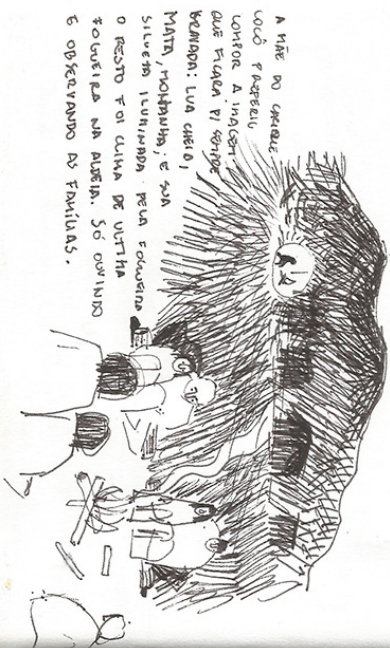 A MÃE DO CACIQUE
COCÔ PREFERIU
COMPOR A IMAGEM
QUE FICARA P/ SEMPRE
GRAVADA: LUA CHEIA,
MATA, MONTANHA, E SUA
SILUETA ILUMINADA PELA FOGUEIRA
O RESTO FOI CLIMA DE ULTIMA
FOGUEIRA NA ALDEIA. SÓ OUVINDO
E OBSERVANDO AS FAMÍLIAS.